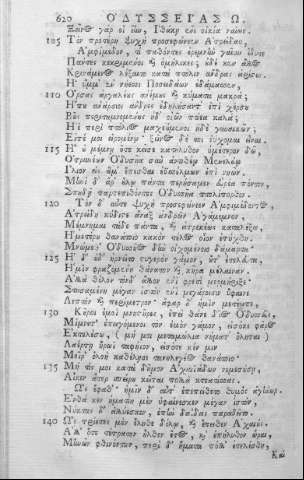 620 ΟΔΥΣΣΕΙΑΣ Ω.
Ξεῖνος γάρ οἱ ἔην, Ἰθάκῃ ἔνι οἰκία ναίων.
105 Τὸν προτέρη ψυχὴ προσεφώνεεν Ἀτρείδαο,
Ἀμφίμεδον, τί παθόντες ἐρεμνὴν γαῖαν ἔδυτε
Πάντες κεκριμένοι καὶ ὁμήλικες; οὐδέ κεν ἄλλως
Κρινάμενος λέξαιτο κατὰ πτόλιν ἄνδρας ἀρίστους.
Ἢ ὔμμ' ἐν νήεσσι Ποσειδάων ἐδάμασσεν,
110 Ὄρσας ἀργαλέους ἀνέμους καὶ κύματα μακρά;
Ἤ που ἀνάρσιοι ἄνδρες ἐδηλήσαντ' ἐπὶ χέρσου
Βοῦς περιταμνομένους ἠδ' οἰῶν πώεα καλά;
Ἠὲ περὶ πτόλιος μαχεούμενοι ἠδὲ γυναικῶν;
Εἰπέ μοι εἰρομένῳ· ξεῖνος δέ τοι εὔχομαι εἶναι.
115 Ἦ οὐ μέμνῃ ὅτε κεῖσε κατήλυθον ὑμέτερον δῶ,
Ὀτρυνέων Ὀδυσῆα σὺν ἀντιθέῳ Μενελάῳ
Ἴλιον εἰς ἅμ' ἕπεσθαι ἐϋσσέλμων ἐπὶ νηῶν;
Μηνὶ δ' ἄρ' οὔλῳ πάντα περήσαμεν εὐρέα πόντον,
Σπουδῇ παρπεπιθόντες Ὀδυσσῆα πτολίπορθον.
120 Τὸν δ' αὖτε ψυχὴ προσεφώνεεν Ἀμφιμέδοντος,
Ἀτρείδη κύδιστε ἄναξ ἀνδρῶν Ἀγάμεμνον,
Μέμνημαι τάδε πάντα, καὶ ἀτρεκέως καταλέξω,
Ἡμετέρου θανάτοιο κακὸν τέλος οἷον ἐτύχθη.
Μνώμεθ' Ὀδυσσῆος δὴν οἰχομένοιο δάμαρτα·
125 Ἡ δ' οὔτ' ἠρνεῖτο στυγερὸν γάμον, οὔτ' ἐτελεύτα,
Ἡμῖν φραζομένη θάνατον καὶ κῆρα μέλαιναν.
Ἀλλὰ δόλον τόνδ' ἄλλον ἐνὶ φρεσὶ μερμήριξε·
Στησαμένη μέγαν ἱστὸν ἐνὶ μεγάροισιν ὕφαινε
Λεπτὸν καὶ περίμετρον· ἄφαρ δ' ἡμῖν μετέειπε,
130 Κοῦροι ἐμοὶ μνηστῆρες, ἐπεὶ θάνε δῖος Ὀδυσσεύς,
Μίμνετ' ἐπειγόμενοι τὸν ἐμὸν γάμον, εἰσόκε φᾶρος
Ἐκτελέσω, (μή μοι μεταμώλια νήματ' ὄληται)
Λαέρτῃ ἥρωϊ ταφήϊον, εἰσότε κέν μιν
Μοῖρ' ὀλοὴ καθέλῃσι τανηλεγέος θανάτοιο·
135 Μή τίς μοι κατὰ δῆμον Ἀχαιιάδων νεμεσήσῃ,
Αἴ κεν ἄτερ σπείρου κεῖται πολλὰ κτεατίσσας.
Ὣς ἔφαθ' ἡμῖν δ' αὖτ' ἐπεπείθετο θυμὸς ἀγήνωρ.
Ἔνθα κεν ἠματίη μὲν ὑφαίνεσκεν μέγαν ἱστὸν,
Νύκτας δ' ἀλλύεσκεν, ἐπὴν δαΐδας παραθεῖτο.
140 Ὣς τρίετες μὲν ἔληθε δόλῳ, καὶ ἔπειθεν Ἀχαιούς·
Ἀλλ' ὅτε τέτρατον ἦλθεν ἔτος, καὶ ἐπήλυθον ὧραι,
Μηνῶν φθινόντων, περὶ δ' ἤματα πόλλ' ἐτελέσθη,
Καὶ